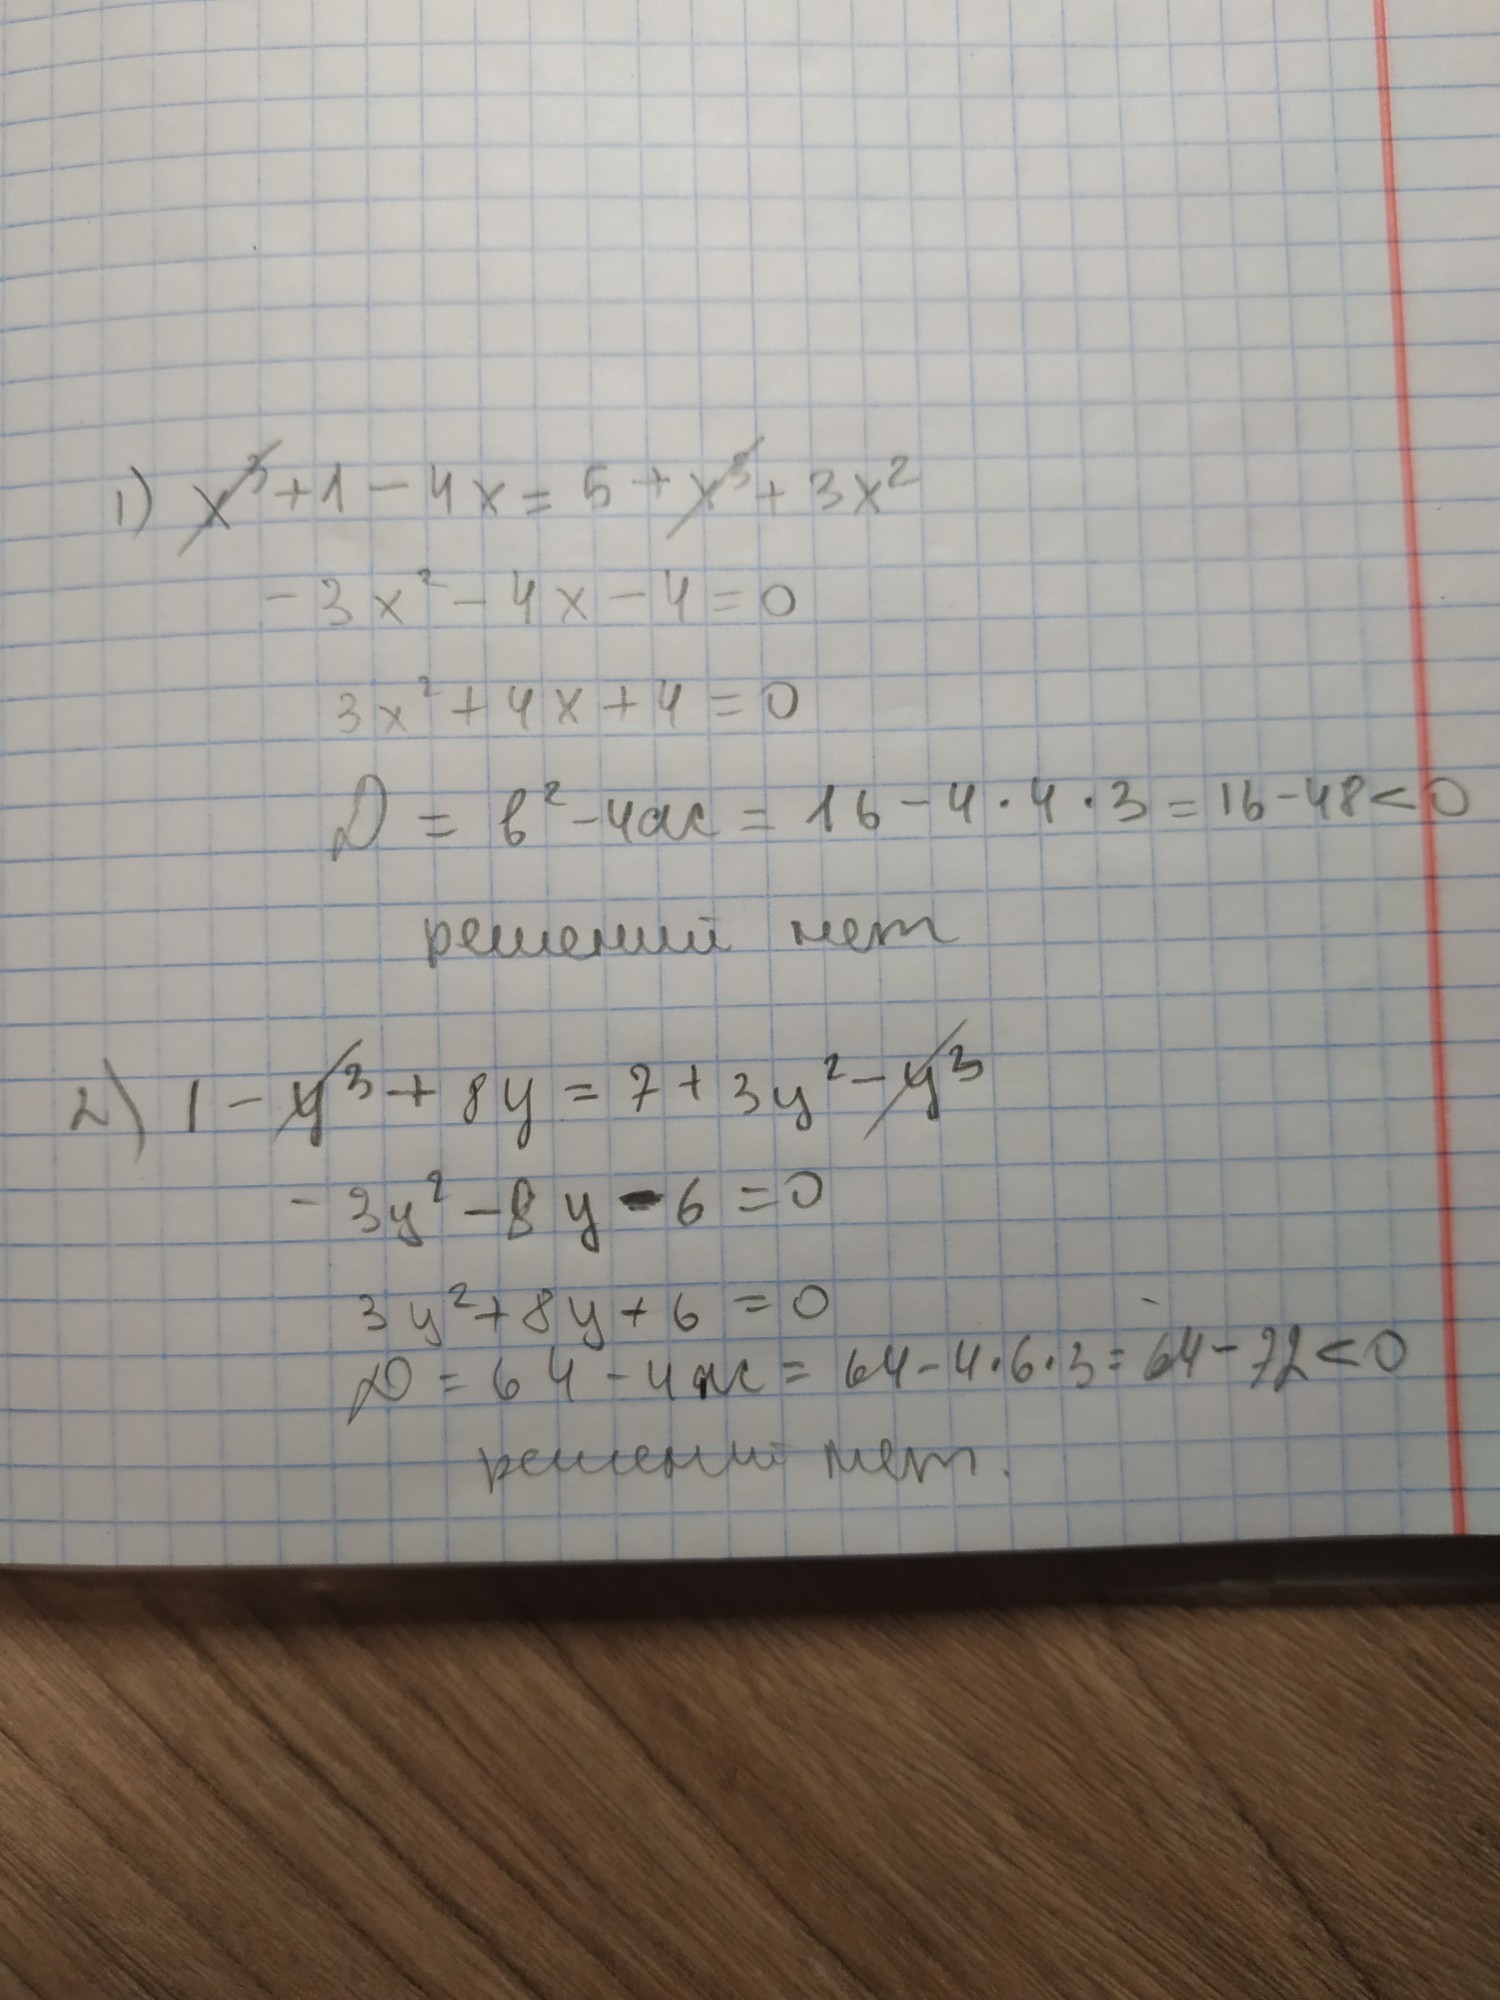 1) x³ + 1 - 4x = 5 + x³ + 3x²
- 3x² - 4x - 4 = 0
3x² + 4x + 4 = 0
D = b² - 4ac = 16 - 4 · 4 · 3 = 16 - 48 < 0
решений нет
2) 1 - y³ + 8y = 7 + 3y² - y³
- 3y² - 8y - 6 = 0
3y² + 8y + 6 = 0
D = 64 - 4ac = 64 - 4 · 6 · 3 = 64 - 72 < 0
решений нет.